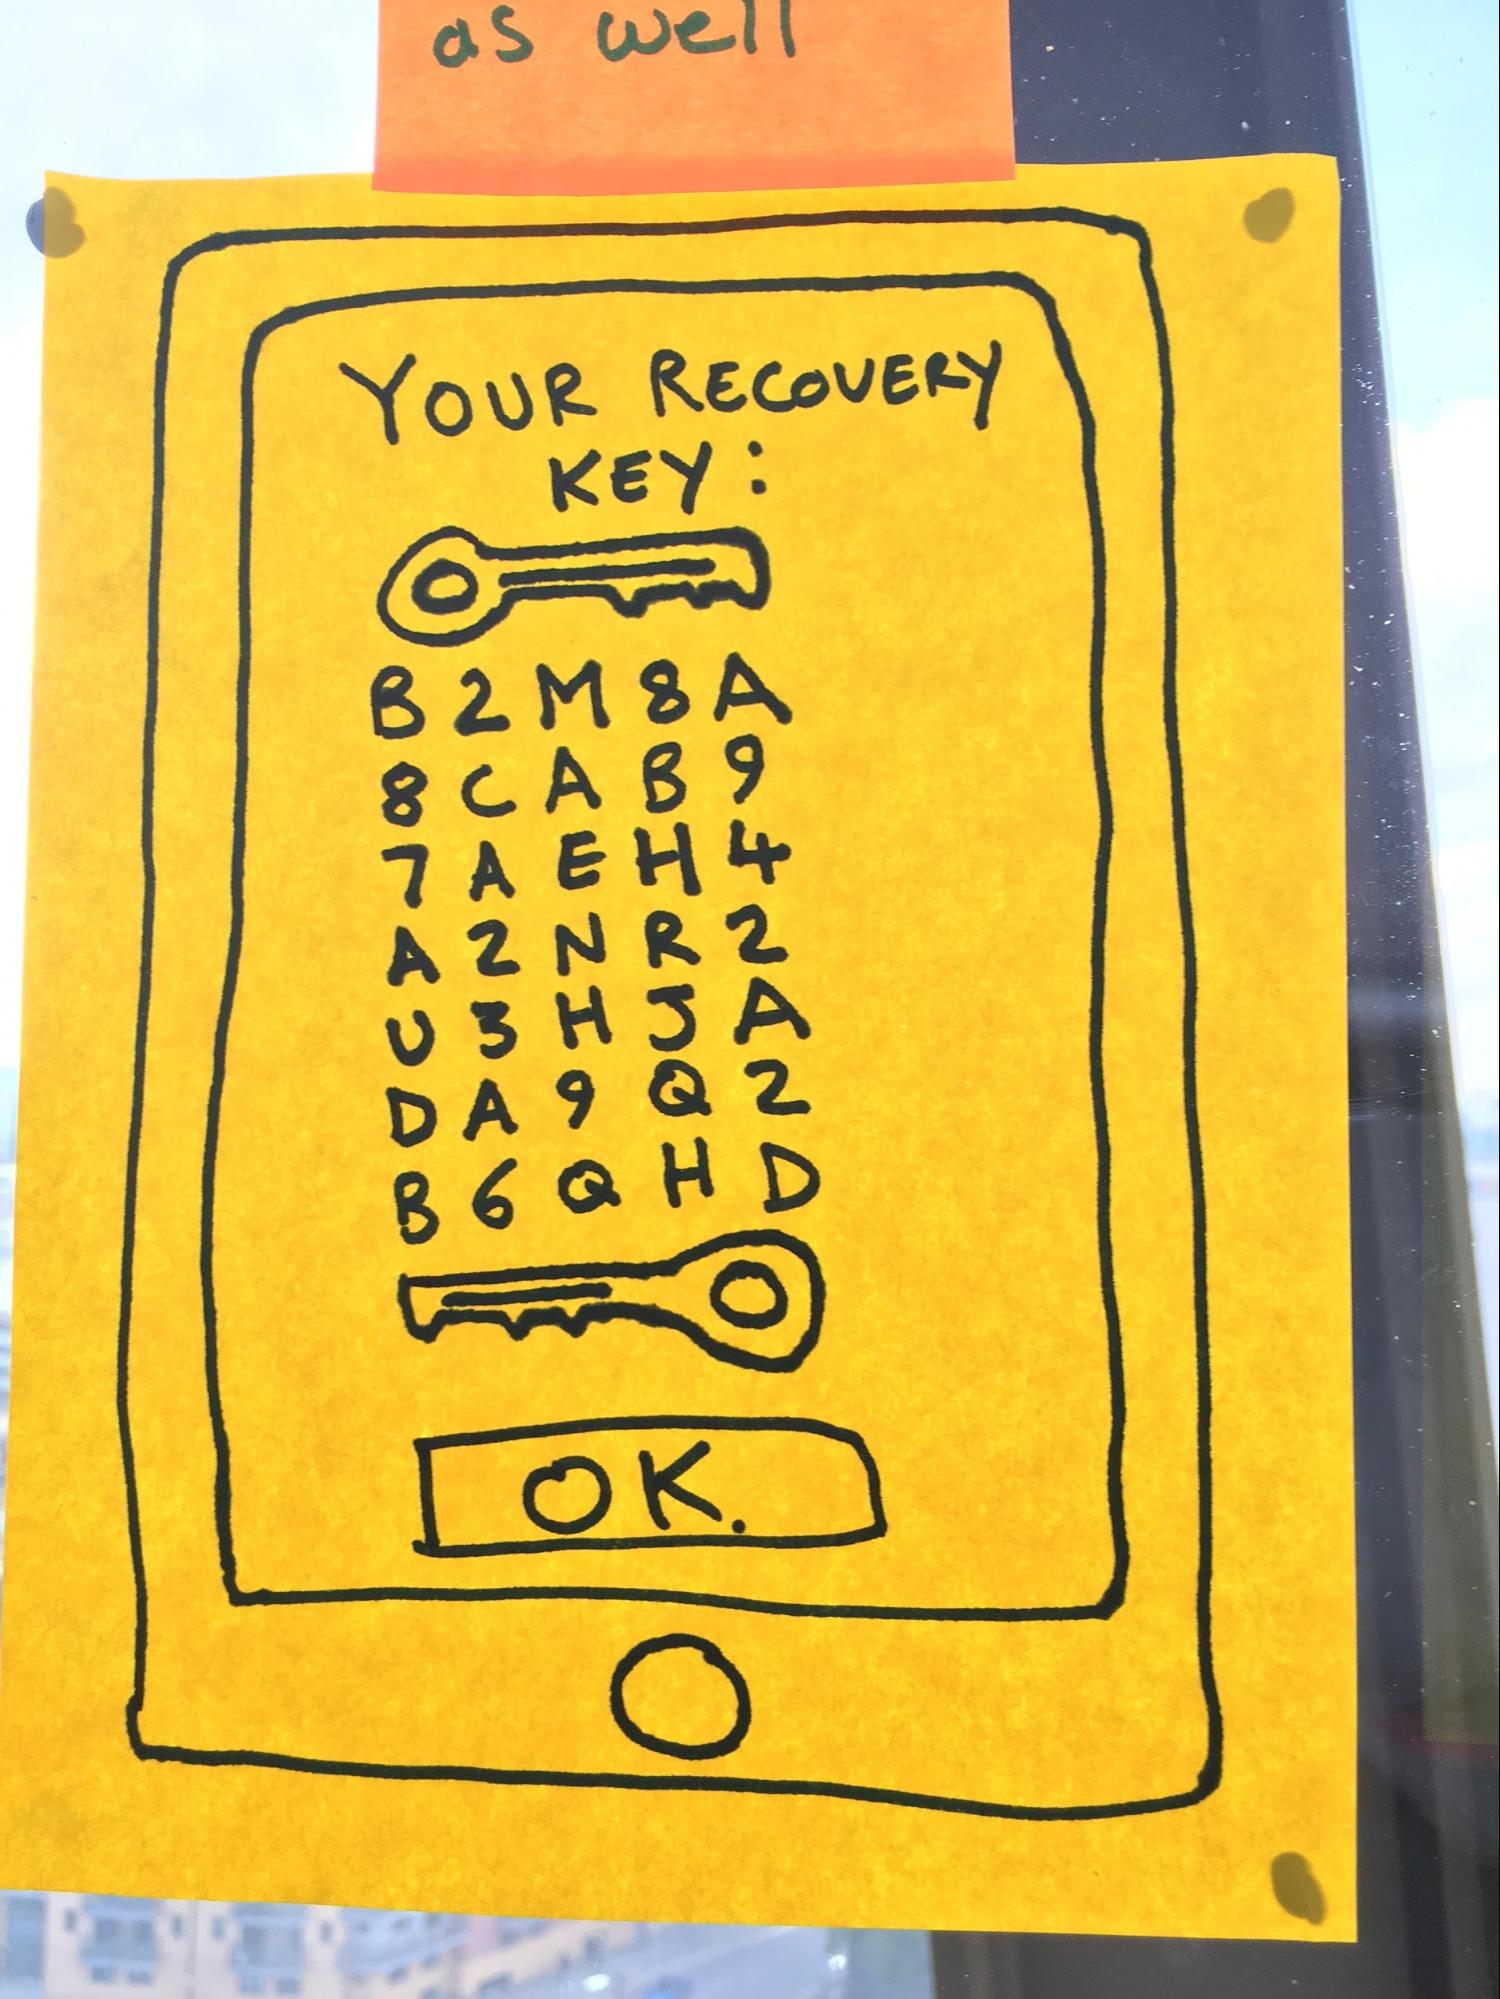 as well
YOUR RECOVERY
KEY:
B 2 M 8 A
8 C A B 9
7 A E H 4
A 2 N R 2
U 3 H J A
D A 9 Q 2
B 6 Q H D
OK.